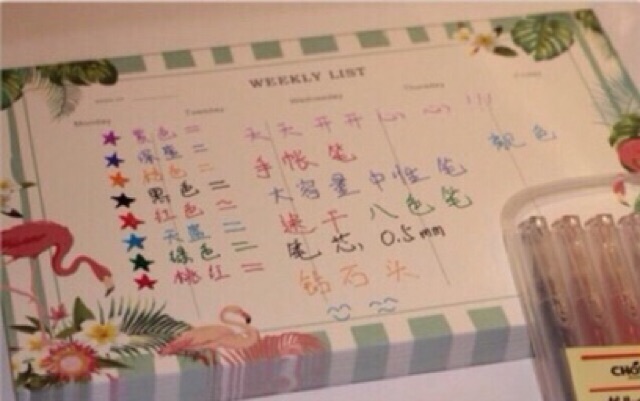 WEEKLY LIST
Monday Tuesday Wednesday Thursday Friday
紫色= 天天开开心心!!!
深蓝= 手帐笔 靓色
桔色= 大容量中性笔
黑色= 速干八色笔
红色~ 笔芯:0.5mm
天蓝= 钻石头
绿色=
桃红=
CHO